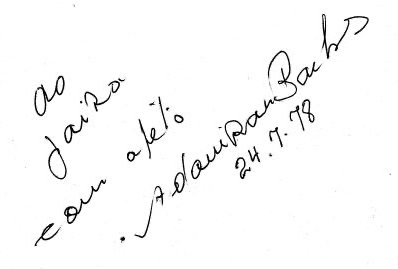 ao
Jairo
com afeto
Adoniran Barbosa
24.7.78